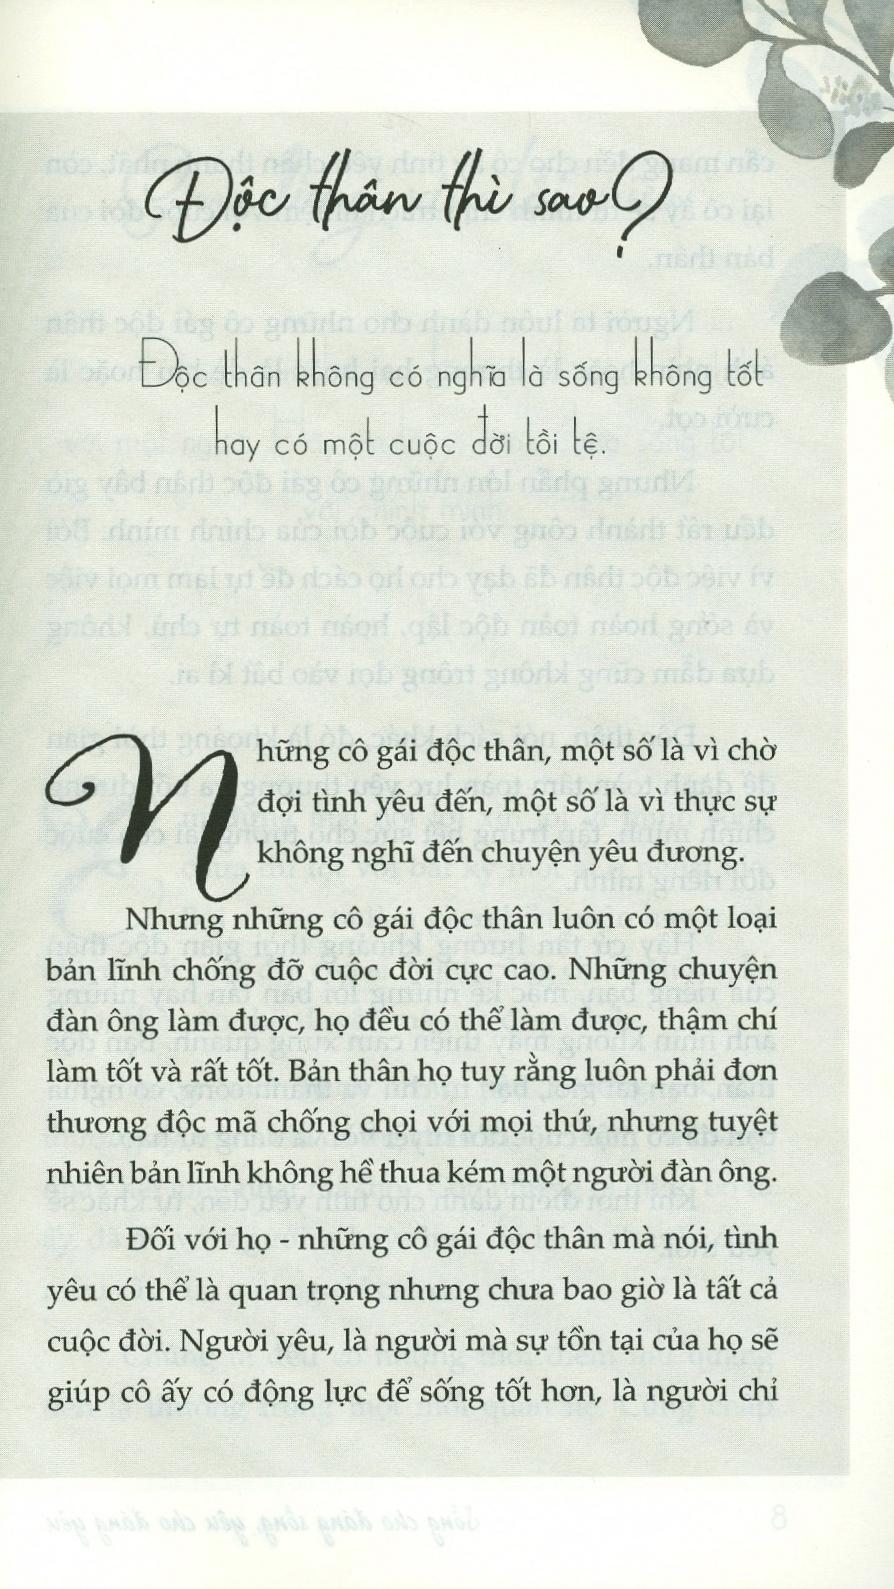 Độc thân thì sao?
Độc thân không có nghĩa là sống không tốt
hay có một cuộc đời tồi tệ.
Những cô gái độc thân, một số là vì chờ
đợi tình yêu đến, một số là vì thực sự
không nghĩ đến chuyện yêu đương.
Nhưng những cô gái độc thân luôn có một loại
bản lĩnh chống đỡ cuộc đời cực cao. Những chuyện
đàn ông làm được, họ đều có thể làm được, thậm chí
làm tốt và rất tốt. Bản thân họ tuy rằng luôn phải đơn
thương độc mã chống chọi với mọi thứ, nhưng tuyệt
nhiên bản lĩnh không hề thua kém một người đàn ông.
Đối với họ - những cô gái độc thân mà nói, tình
yêu có thể là quan trọng nhưng chưa bao giờ là tất cả
cuộc đời. Người yêu, là người mà sự tồn tại của họ sẽ
giúp cô ấy có động lực để sống tốt hơn, là người chỉ